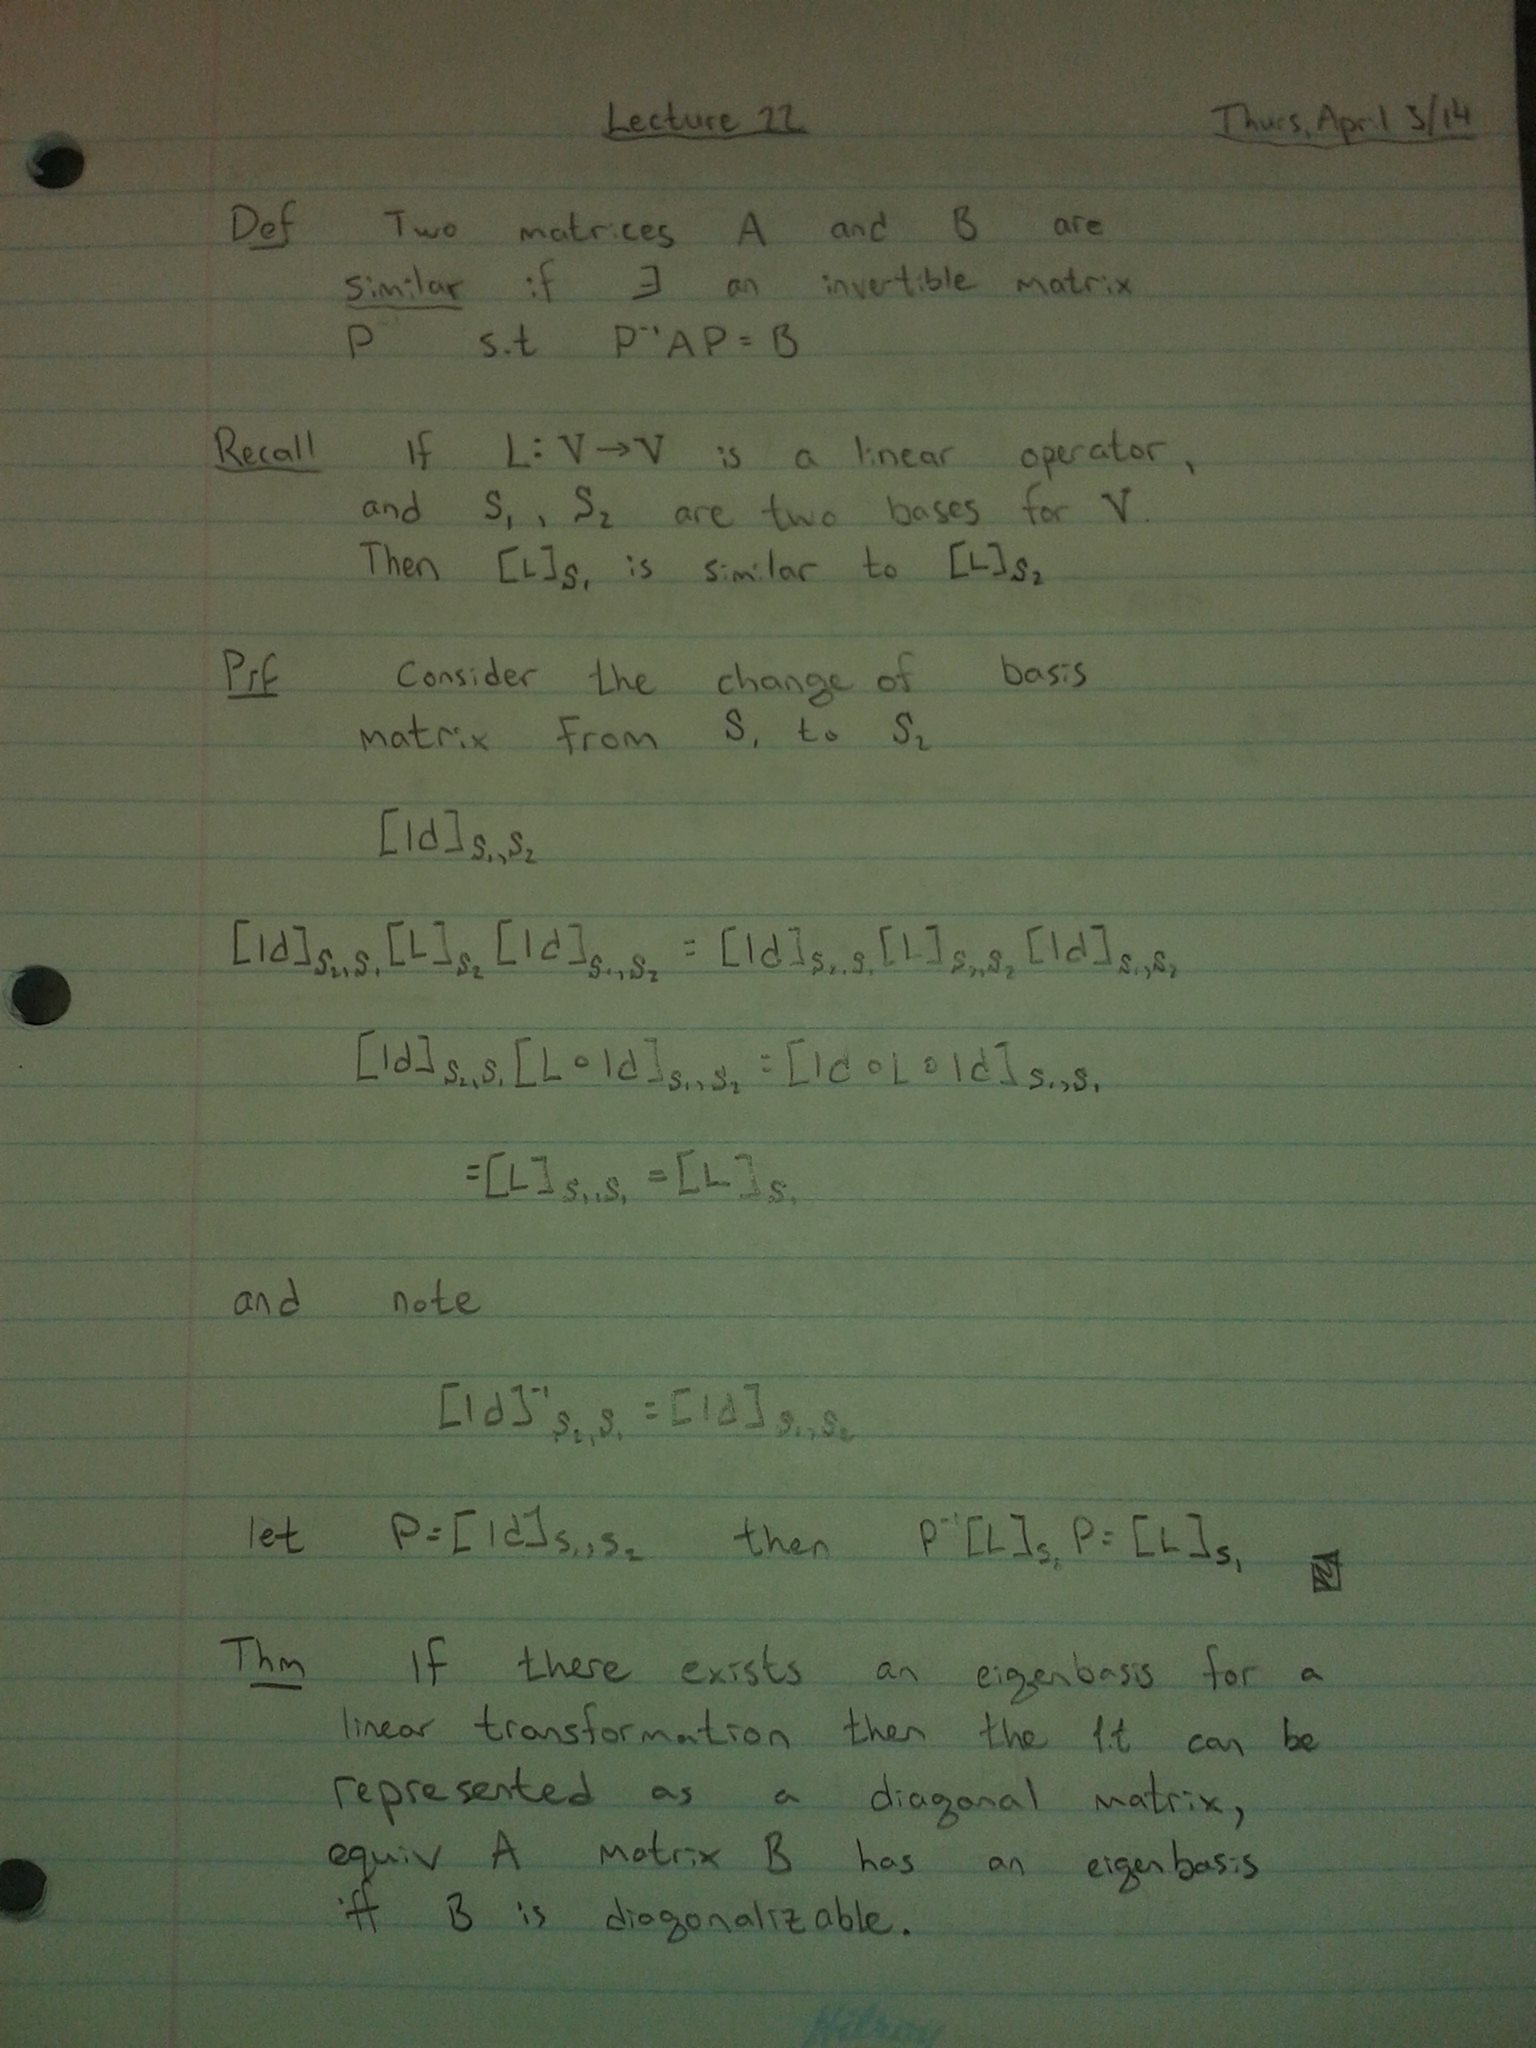 Lecture 22
Thurs, April 3/14
Def Two matrices A and B are
similar if ∃ an invertible matrix
P s.t P⁻¹AP = B
Recall If L: V→V is a linear operator,
and S₁, S₂ are two bases for V.
Then [L]S₁ is similar to [L]S₂
Prf Consider the change of basis
matrix from S₁ to S₂
[Id]S₁,S₂
[Id]S₂,S₁ [L]S₂ [Id]S₁,S₂ = [Id]S₂,S₁ [L]S₂,S₂ [Id]S₁,S₂
[Id]S₂,S₁ [L∘Id]S₁,S₂ = [Id∘L∘Id]S₁,S₁
= [L]S₁,S₁ = [L]S₁
and note
[Id]⁻¹S₂,S₁ = [Id]S₁,S₂
let P = [Id]S₁,S₂ then P⁻¹[L]S₂ P = [L]S₁
Thm If there exists an eigenbasis for a
linear transformation then the l.t can be
represented as a diagonal matrix,
equiv A matrix B has an eigenbasis
iff B is diagonalizable.
Hilroy